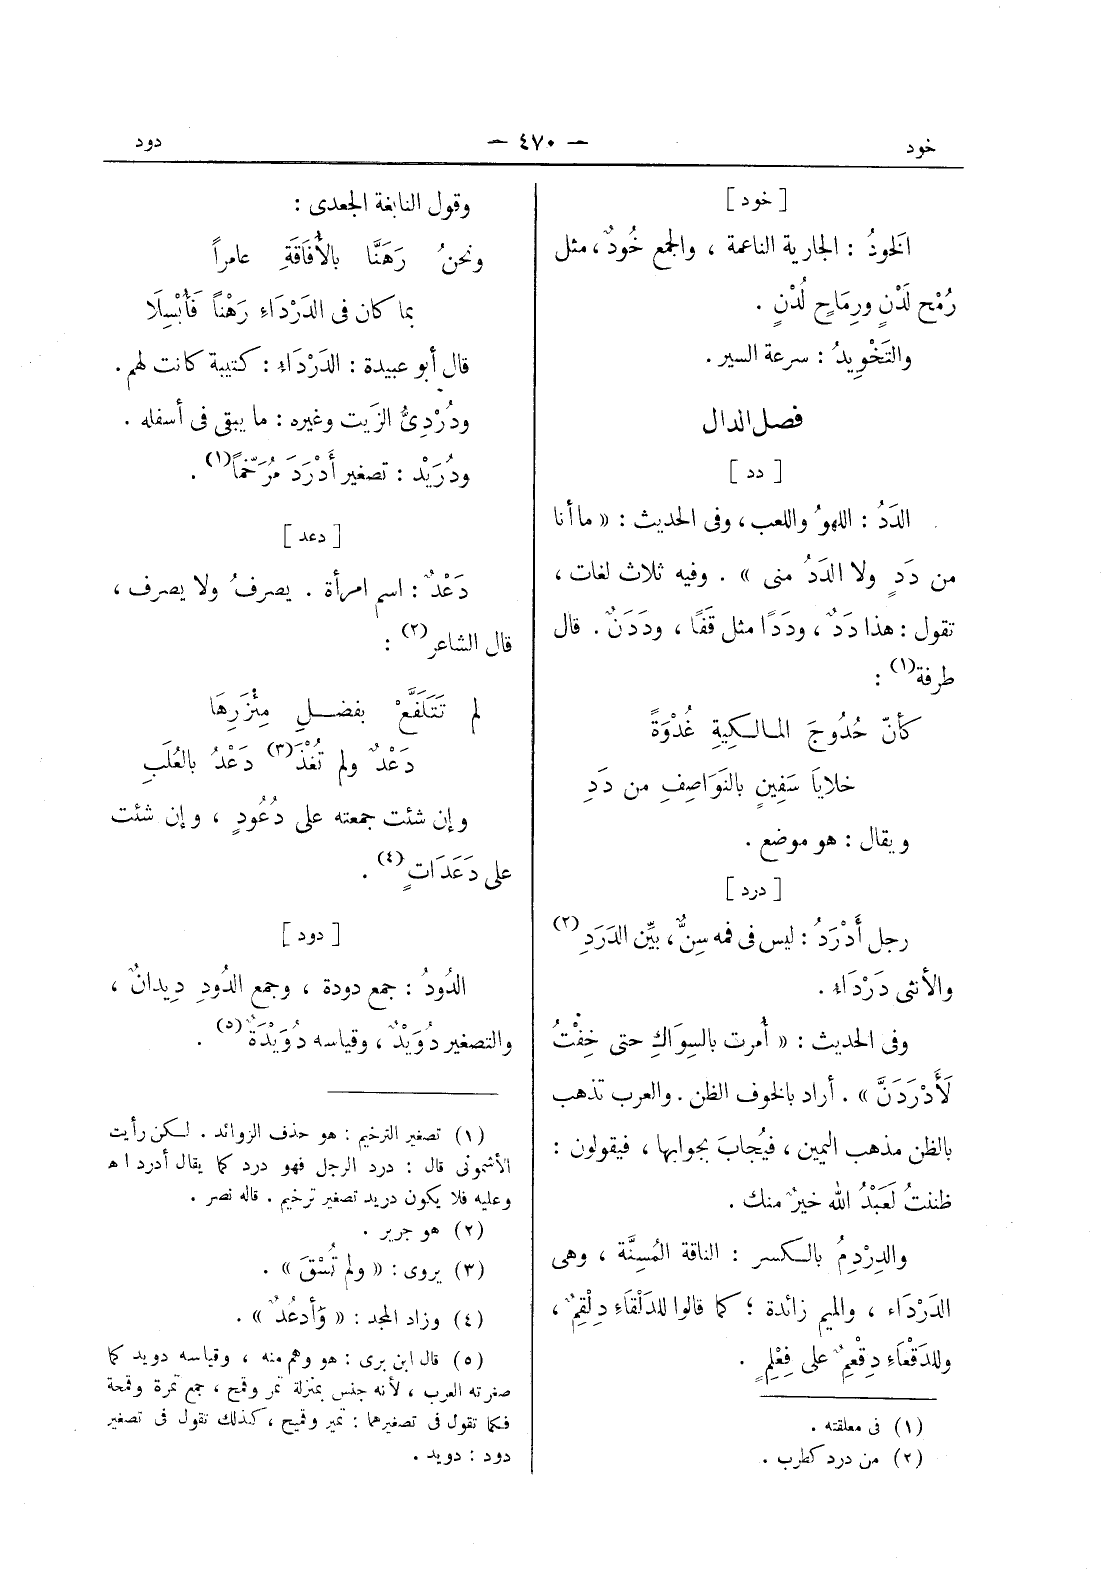 خود
— ٤٧٠ —
دود
[ خود ]
الخَودُ : الجارية الناعمة ، والجمع خُودٌ ، مثل
رُمْحٍ لَدْنٍ ورِمَاحٍ لُدْنٍ .
والتَخْوِيدُ : سرعة السير .
فصل الدال
[ دد ]
الدَدُ : اللهوُ واللعب ، وفى الحديث : « ما أنا
من دَدٍ ولا الدَدُ منى » . وفيه ثلاث لغات ،
تقول : هذا دَدٌ ، ودَدًا مثل قَفًا ، ودَدَنٌ . قال
طرفة(١) :
كأنّ حُدُوجَ المالكيةِ غُدْوَةً
خلاياَ سَفِينٍ بالنَوَاصِفِ من دَدِ
ويقال : هو موضع .
[ درد ]
رجل أَدْرَدُ : ليس فى فمه سِنٌّ ، بيِّن الدَرَدِ(٢)
والأنثى دَرْدَاء .
وفى الحديث : « أُمرت بالسِوَاكِ حتى خِفْتُ
لَأَدْرَدَنَّ » . أراد بالخوف الظن . والعرب تذهب
بالظن مذهب اليمين ، فيُجابَ بجوابها ، فيقولون :
ظننتُ لَعَبْدُ الله خيرٌ منك .
والدِرْدِمُ بالكسر : الناقة المُسِنَّة ، وهى
الدَرْدَاء ، والميم زائدة ؛ كما قالوا للدَلْقَاءِ دِلْقِمٌ ،
وللدَقْعَاءِ دِقْعِمٌ على فِعْلِمٍ .
(١) فى معلقته .
(٢) من درد كطرب .
وقول النابغة الجعدى :
ونحنُ رَهَنَّا بالأُفَاقَةِ عامراً
بما كان فى الدَرْدَاءِ رَهْناً فَأُبْسِلَا
قال أبو عبيدة : الدَرْدَاء : كتيبة كانت لهم .
ودُرْدِىُّ الزَيت وغيره : ما يبقى فى أسفله .
ودُرَيْد : تصغير أَدْرَدَ مُرَخّماً(١) .
[ دعد ]
دَعْدٌ : اسم امرأة . يصرفُ ولا يصرف ،
قال الشاعر(٢) :
لم تَتَلَفَّعْ بفضلِ مِئْزَرِهَا
دَعْدٌ ولم تُغْذَ(٣) دَعْدُ بالعُلَبِ
وإن شئت جمعته على دُعُودٍ ، وإن شئت
على دَعَدَاتٍ(٤) .
[ دود ]
الدُودُ : جمع دودة ، وجمع الدُودِ دِيدانٌ ،
والتصغير دُوَيْدٌ ، وقياسه دُوَيْدَةٌ(٥) .
(١) تصغير الترخيم : هو حذف الزوائد . لكن رأيت
الأشمونى قال : درد الرجل فهو درد كما يقال أدرد اهـ
وعليه فلا يكون دريد تصغير ترخيم . قاله نصر .
(٢) هو جرير .
(٣) يروى : « ولم تُسْقَ » .
(٤) وزاد المجد : « وَأَدعُدٌ » .
(٥) قال ابن برى : هو وهم منه ، وقياسه دويد كما
صغرته العرب ، لأنه جنس بمنزلة تمر وقمح ، جمع تمرة وقمحة
فكما تقول فى تصغيرهما : تمير وقميح ، كذلك تقول فى تصغير
دود : دويد .